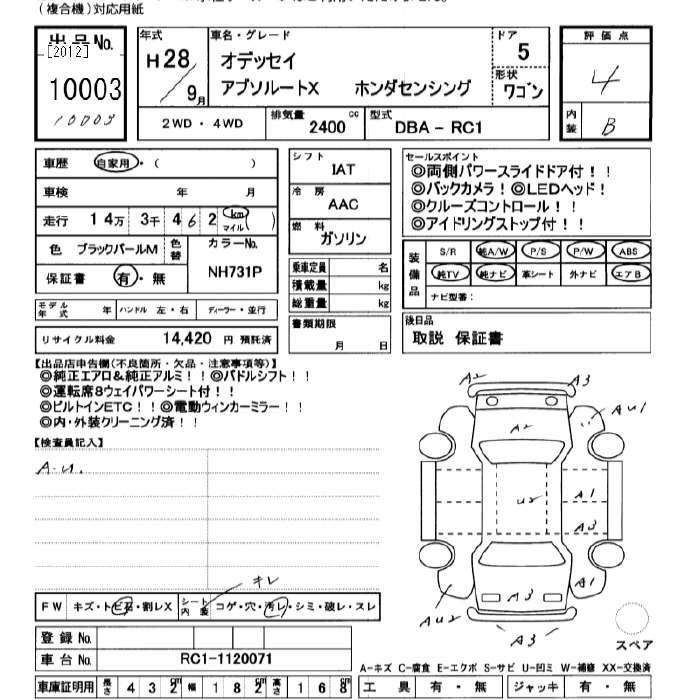 (複合機)対応用紙
出品No.
[2012]
10003
10003
年式 H28/9月
車名・グレード
オデッセイ
アブソルートX ホンダセンシング
ドア 5
形状 ワゴン
評価点
4
内装 B
2WD・4WD
排気量 2400 cc
型式 DBA-RC1
車歴 自家用・( )
車検 年 月
走行 14万 3千 4 6 2 km マイル ( )
色 ブラックパールM 色替
カラーNo. NH731P
保証書 有・無
モデル年式 年 ハンドル 左・右 ディーラー・並行
リサイクル料金 14,420 円 預託済
シフト IAT
冷房 AAC
燃料 ガソリン
乗車定員 名
積載量 kg
総重量 kg
書類期限 月 日
セールスポイント
◎両側パワースライドドア付!!
◎バックカメラ!◎LEDヘッド!
◎クルーズコントロール!!
◎アイドリングストップ付!!
装備品
S/R 純A/W P/S P/W ABS
純TV 純ナビ 革シート 外ナビ エアB
ナビ型番:
後日品
取説 保証書
【出品店申告欄(不良箇所・欠品・注意事項等)】
◎純正エアロ&純正アルミ!!◎パドルシフト!!
◎運転席8ウェイパワーシート付!!
◎ビルトインETC!!◎電動ウィンカーミラー!!
◎内・外装クリーニング済!!
【検査員記入】
A-U.
キレ
FW キズ・トビ石・割レX
シート内装 コゲ・穴・汚レ・シミ・破レ・スレ
登録No.
車台No. RC1-1120071
車庫証明用 長さ 4 3 2 cm 幅 1 8 2 cm 高さ 1 6 8 cm
A2
A3
AU1
A2
U2
A1
A3
A1
A3
AU2
A3
スペア
A-キズ C-腐食 E-エクボ S-サビ U-凹ミ W-補修 XX-交換済
工具 有・無 ジャッキ 有・無